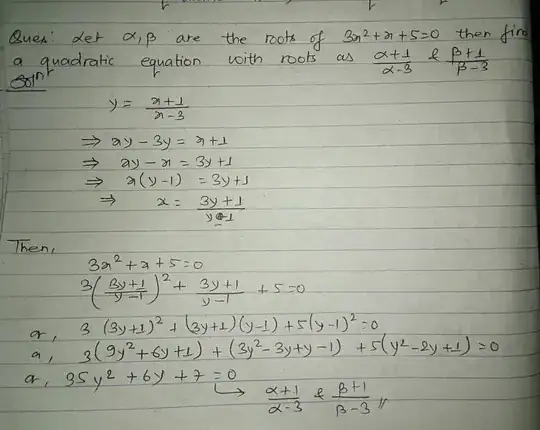 Ques: Let α, β are the roots of 3x² + x + 5 = 0 then find
a quadratic equation with roots as (α+1)/(α-3) & (β+1)/(β-3)
Solⁿ
y = (x+1)/(x-3)
⇒ xy - 3y = x+1
⇒ xy - x = 3y+1
⇒ x(y-1) = 3y+1
⇒ x = (3y+1)/(y-1)
Then,
3x² + x + 5 = 0
3((3y+1)/(y-1))² + (3y+1)/(y-1) + 5 = 0
or, 3 (3y+1)² + (3y+1)(y-1) + 5(y-1)² = 0
or, 3(9y² + 6y + 1) + (3y² - 3y + y - 1) + 5(y² - 2y + 1) = 0
or, 35y² + 6y + 7 = 0
↳ (α+1)/(α-3) & (β+1)/(β-3) //